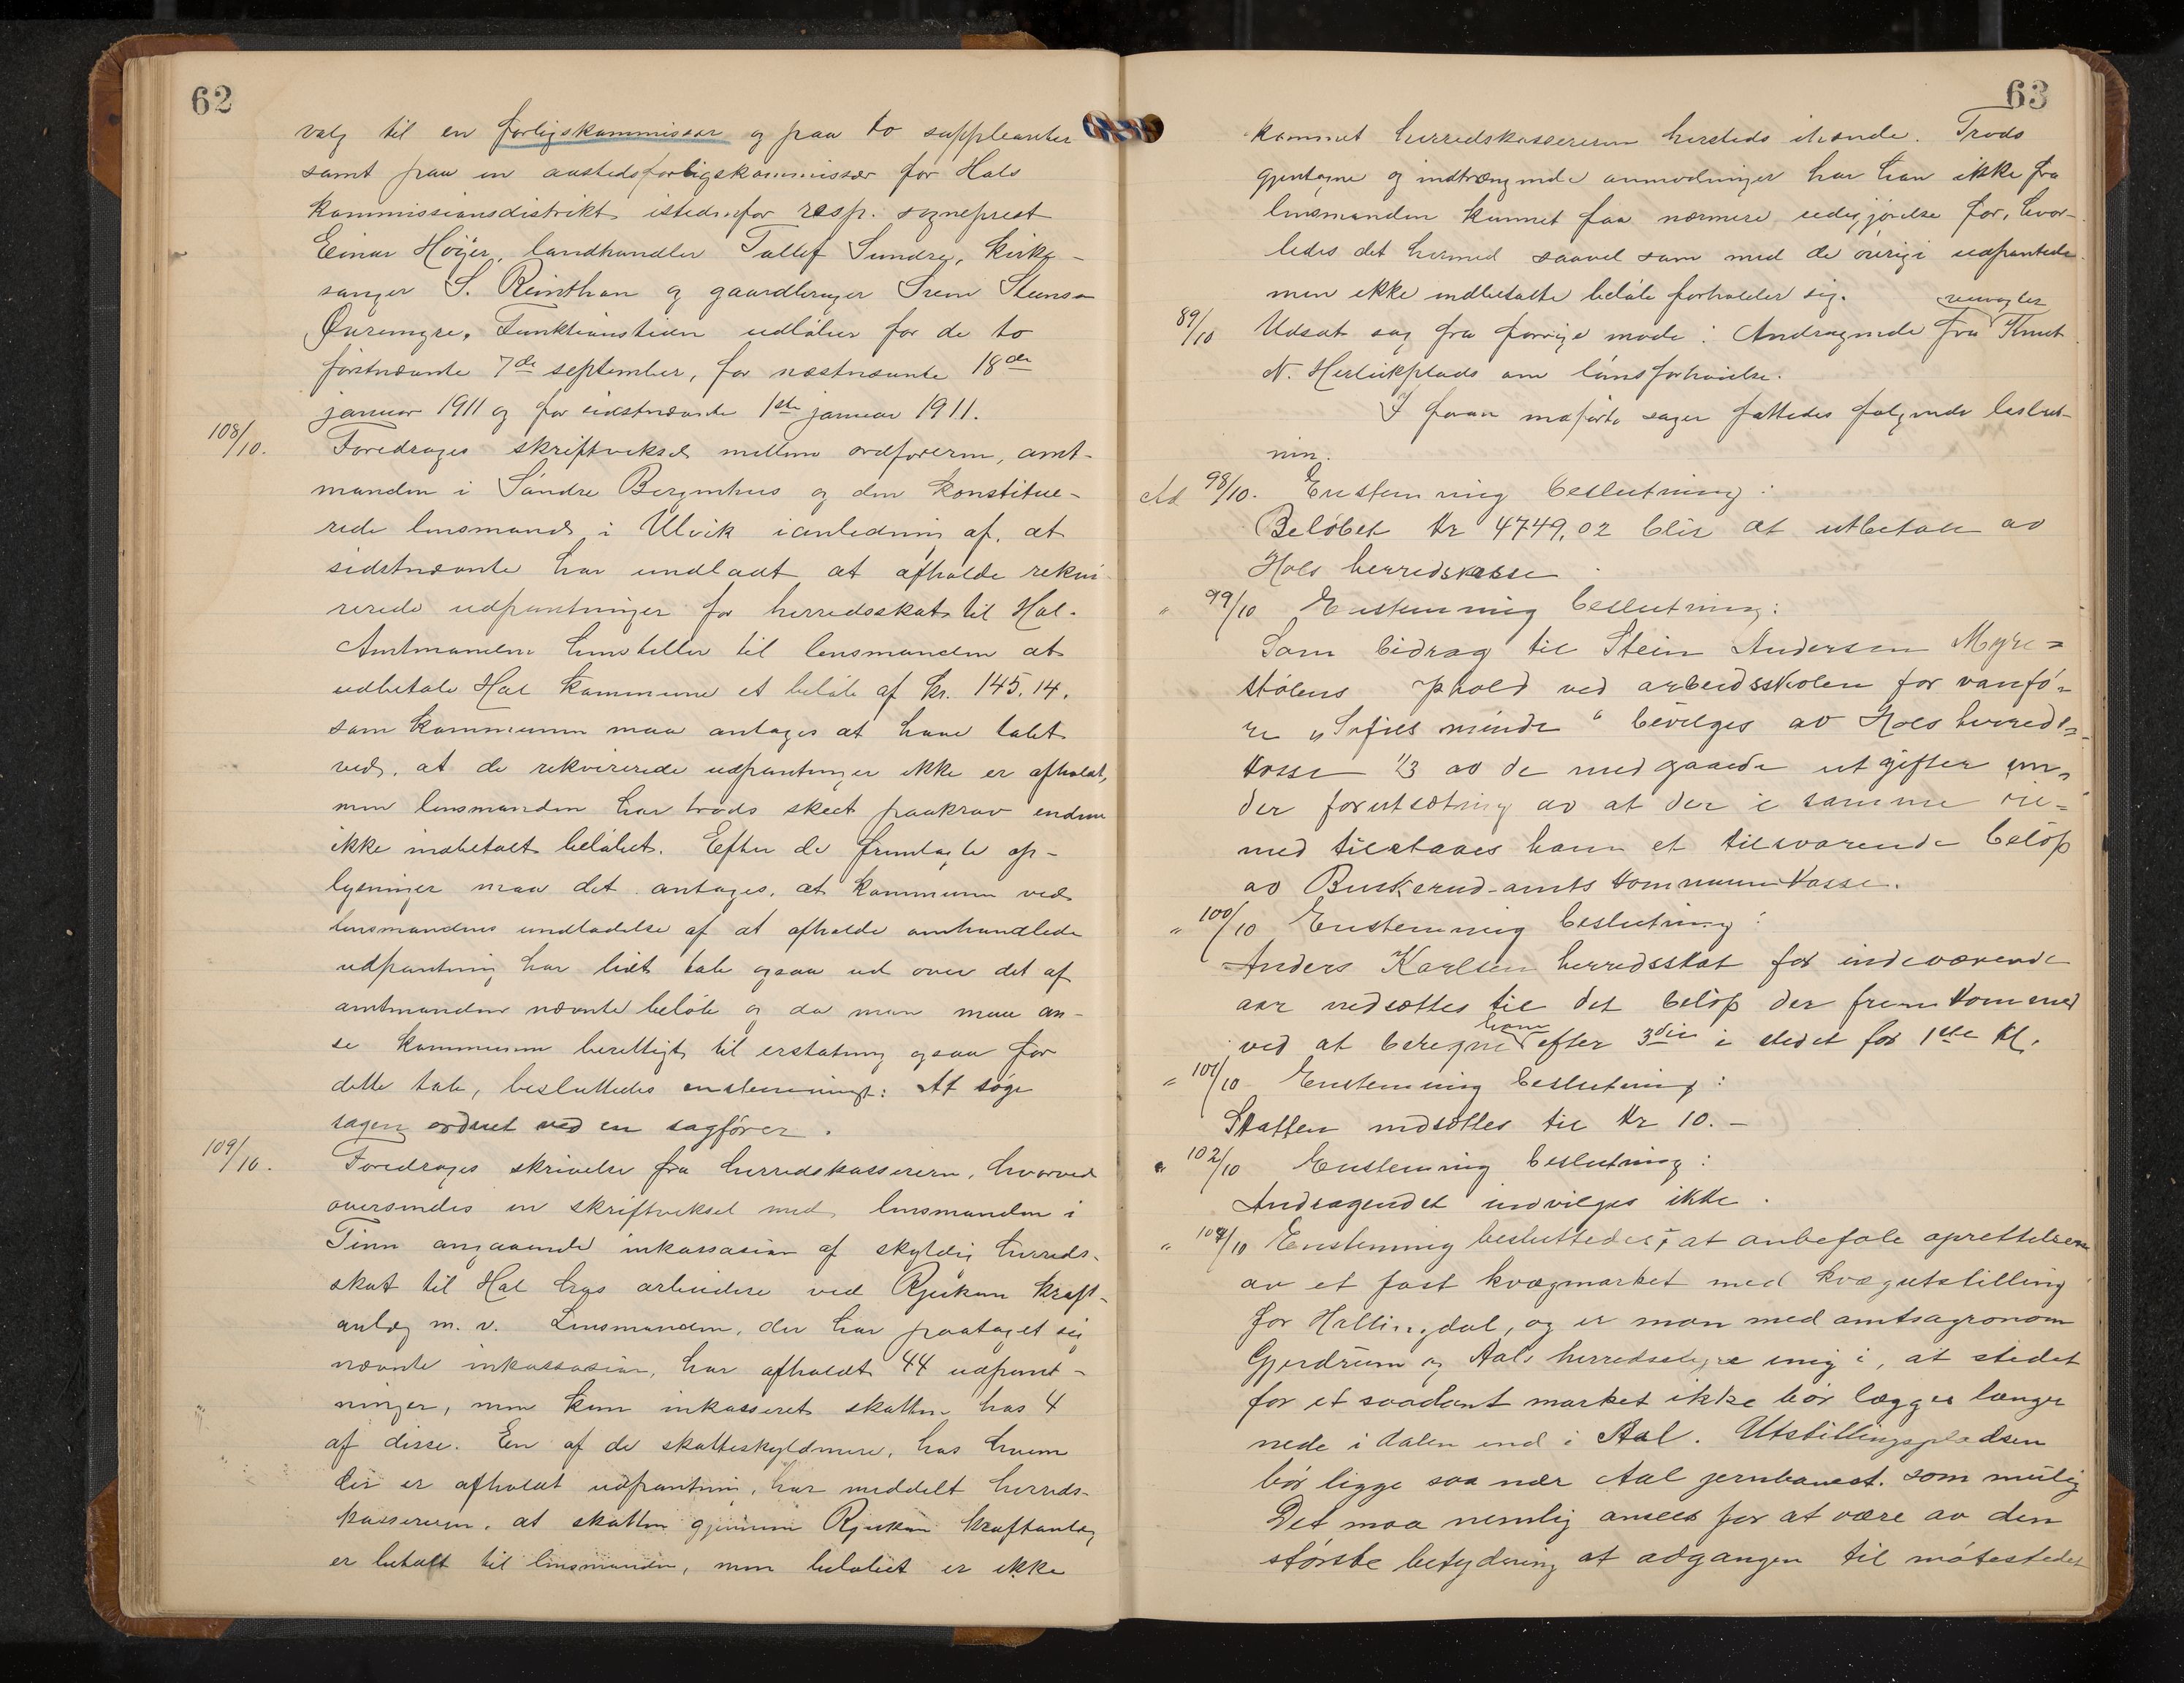 62
valg til en forligskommissær og paa to suppleanter
samt paa en aastedsforligskommissær for Hols
kommissionsdistrikt istedenfor resp. sogneprest
Einar Höyer, landhandler Tollef Sundre, kirke-
sanger S. Reinthon og gaardbruger Svein Steinsen
Funktionstiden udløber for de to
førstnævnte 7de september, for næstnævnte 18de
januar 1911 og for sidstnævnte 1ste januar 1911.
108/10. Foredrages skriftveksel mellem ordføreren, amt-
manden i Søndre Bergenhus og den konstitue-
rede lensmand i Ulvik i anledning af, at
sidstnævnte har undladt at afholde rekvi-
rerede udpantninger for herredsskat til Hol.
Amtmanden henstiller til lensmanden at
udbetale Hol kommune et beløb af kr. 145,14,
som kommunen maa antages at have tabt
ved, at de rekvirerede udpantninger ikke er afholdt,
men lensmanden har trods skeet paakrav endnu
ikke indbetalt beløbet. Efter de fremlagte op-
lysninger maa det antages, at kommunen ved
lensmandens undladelse af at afholde omhandlede
udpantning har lidt tab ogsaa ud over det af
amtmanden nævnte beløb og da man maa an-
se kommunen berettiget til erstatning ogsaa for
dette tab, besluttedes enstemmigt: At søge
sagen ordnet ved en sagfører.
109/10. Foredrages skrivelse fra herredskassereren, hvorved
oversendes en skriftveksel med lensmanden i
Tinn angaaende inkassasion af skyldig herreds-
skat til Hol hos arbeidere ved Rjukan kraft-
anlæg m. v. Lensmanden, der har paataget sig
nævnte inkassasion, har afholdt 44 udpant-
ninger, men kun inkasseret skatten hos 4
af disse. En af de skatteskyldnere, hos hvem
der er afholdt udpantning, har meddelt herreds-
kassereren, at skatten gjennem Rjukan kraftanlæg
er betalt til lensmanden, men beløbet er ikke
63
kommet herredskassereren hersteds ihænde. Trods
gjentagne og indtrængende anmodninger har han ikke fra
lensmanden kunnet faa nærmere redegjørelse for, hvor-
ledes det hermed saavel som med de øvrige udpantede
men ikke indbetalte beløb forholder sig.
89/10 Udsat sag fra forrige møde: Andragende fra veivogter Knut
N. Herleikplads om lønsforhøielse.
I foran anførte sager fattedes følgende beslut-
nin.
Ad 98/10. Enstemmig beslutning:
Beløbet kr 4749,02 blir at utbetale av
Hols herredskasse.
" 99/10 Enstemmig beslutning:
Som bidrag til Stein Andersen Myre=
stølens phold ved arbeidsskolen for vanfø=
re "Sofies minde" bevilges av Hols herreds=
kasse 1/3 av de medgaaede utgifter un=
der forutsætning av at der i samme øie=
med tilstaaes ham et tilsvarende beløp
av Buskerud amts kommunekasse.
" 100/10 Enstemmig beslutning:
Anders Karlsen herredsskat for indeværende
aar nedsættes til det beløp der fremkommer
ved at beregne ham efter 3die i stedet for 1ste kl.
" 101/10 Enstemmig beslutning:
Skatten nedsættes til kr 10.-
" 102/10 Enstemmig beslutning:
Andragendet indvilges ikke.
" 104/10 Enstemmig besluttedes, at anbefale oprettelsen
av et fast kvægmarket med kvægutstilling
for Hallingdal, og er man med amtsagronom
Gjerdrum og Aals herredsstyre enig i, at stedet
for et saadant market ikke bør lægges længer
nede i dalen end i Aal. Utstillingspladsen
bør ligge saa nær Aal jernbanest. som mulig
Det maa nemlig ansees for at være av den
største betydning at adgangen til møtestedet